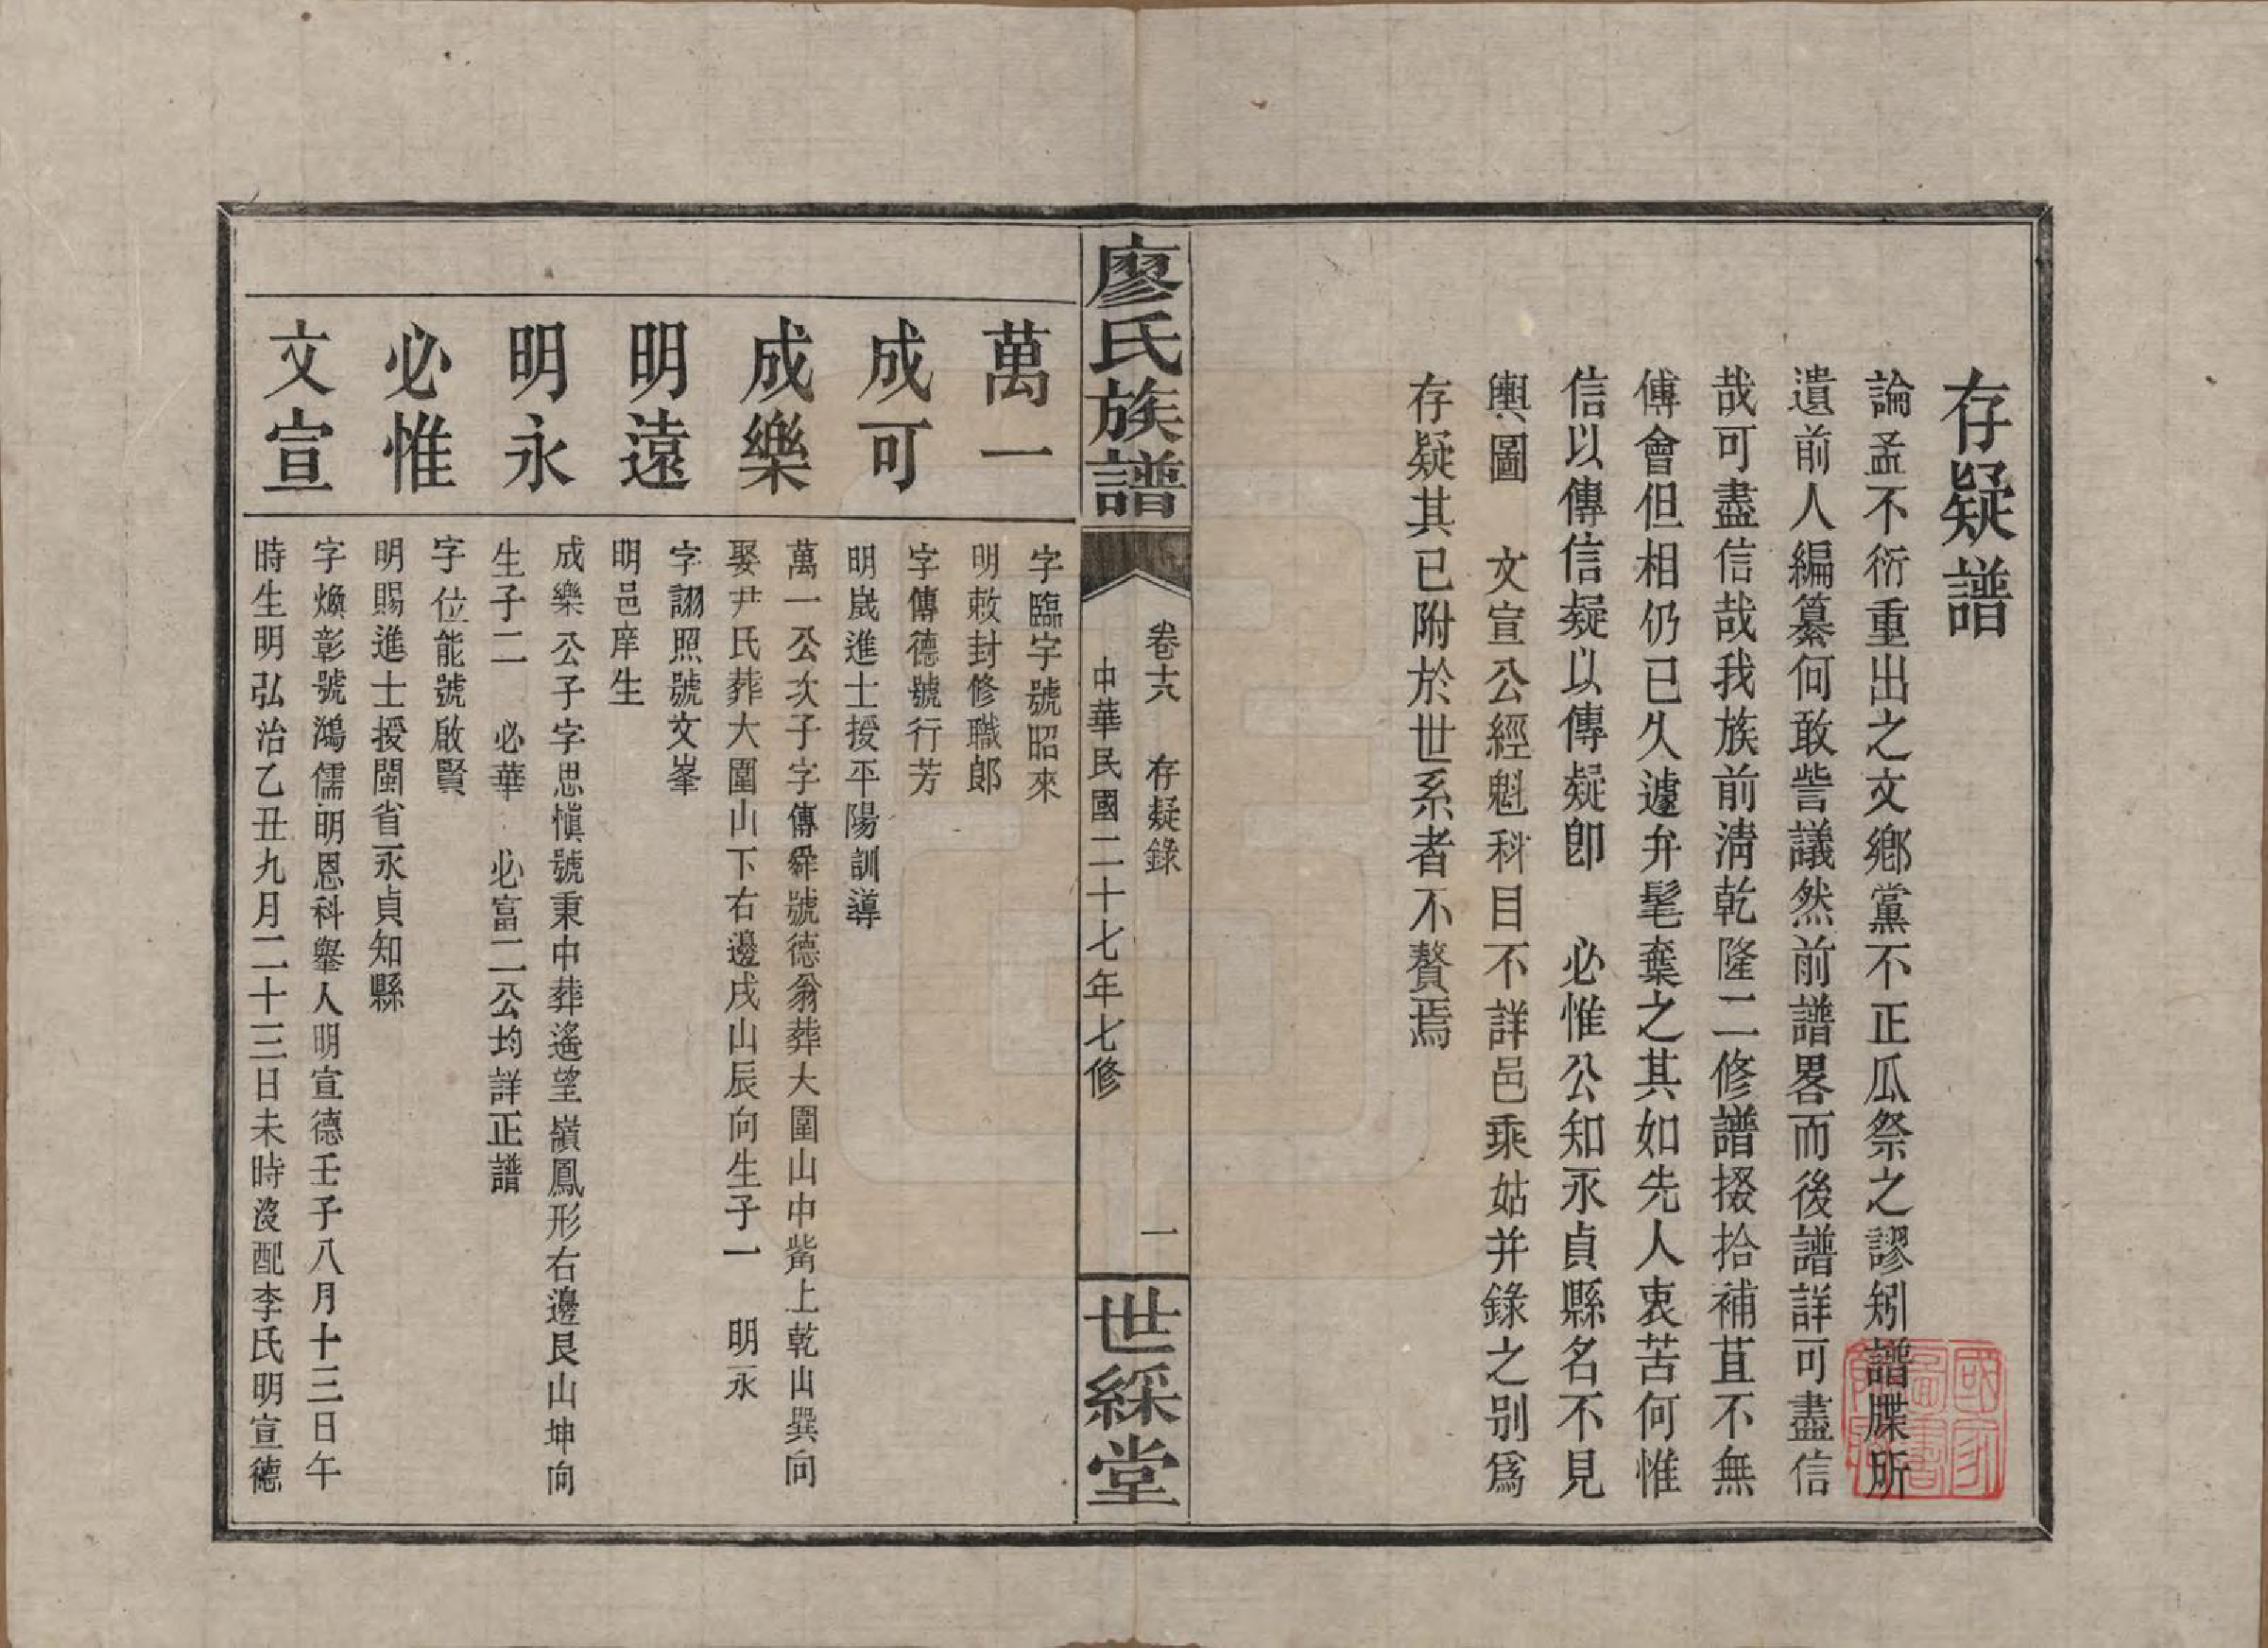 存疑譜
論孟不衍重出之文鄉黨不正瓜祭之謬矧譜牒所
遺前人編纂何敢訾議然前譜畧而後譜詳可盡信
哉可盡信哉我族前淸乾隆二修譜掇拾補苴不無
傅會但相仍已久遽弁髦棄之其如先人衷苦何惟
信以傳信疑以傳疑卽　必惟公知永貞縣名不見
輿圖　文宣公經魁科目不詳邑乘姑并錄之别爲
存疑其已附於世系者不贅焉
廖氏族譜
卷六　存疑錄
中華民國二十七年七修
一
世綵堂
萬一
字臨字號昭來
明敕封修職郎
成可
字傳德號行芳
明嵗進士授平陽訓導
成樂
萬一公次子字傳舜號德翁葬大圍山中觜上乾山巽向
娶尹氏葬大圍山下右邊戌山辰向生子一　明永
明遠
字詡照號文峯
明邑庠生
明永
成樂公子字思愼號秉中葬遙望嶺鳳形右邊艮山坤向
生子二　必華　必富二公均詳正譜
必惟
字位能號啟賢
明賜進士授閩省永貞知縣
文宣
字煥彰號鴻儒明恩科舉人明宣德壬子八月十三日午
時生明弘治乙丑九月二十三日未時沒配李氏明宣德
國家圖書館藏